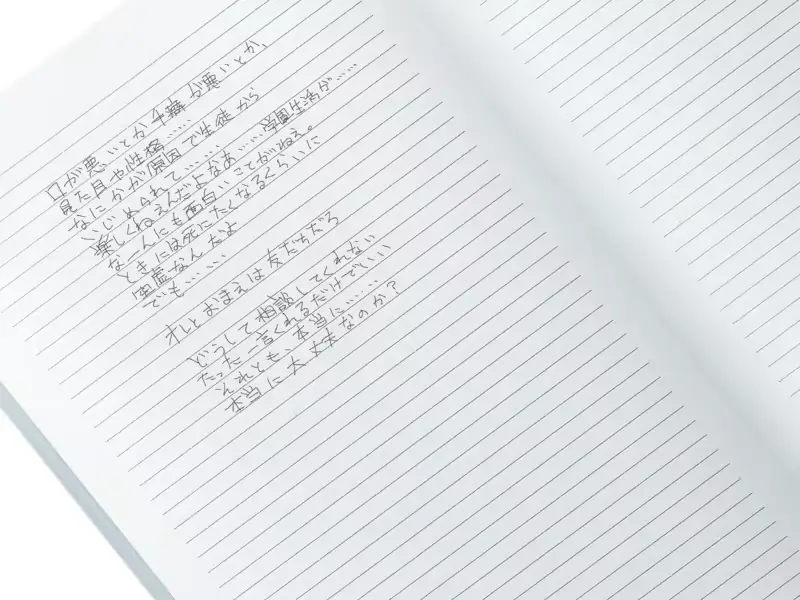 口が悪いとか手癖が悪いとか、
見た目や性格……
なにかが原因で生徒から
いじめられて………
楽しくねえんだよなあ……学園生活が……
なーんにも面白いことがねえ。
ときには死にたくなるくらいに
空虚なんだよ
でも………
オレとおまえは友だちだろ
どうして相談してくれない
たった一言くれるだけでいい
それとも、本当に……
本当に大丈夫なのか?